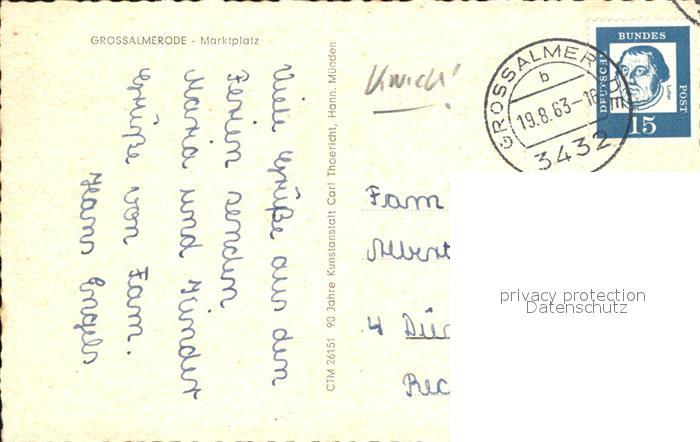 GROSSALMERODE - Marktplatz
Viele Grüße aus den
Ferien senden
Maria und Kinder
Grüße von Fam.
Hans Engels
CTM 26151 90 Jahre Kunstanstalt Carl Thoericht, Hann. Münden
GROSSALMERODE
b
19.8.63-16
3432
DEUTSCHE
BUNDES
POST
Luther
15
Fam
Albert
4 Dü
Rec
privacy protection
Datenschutz